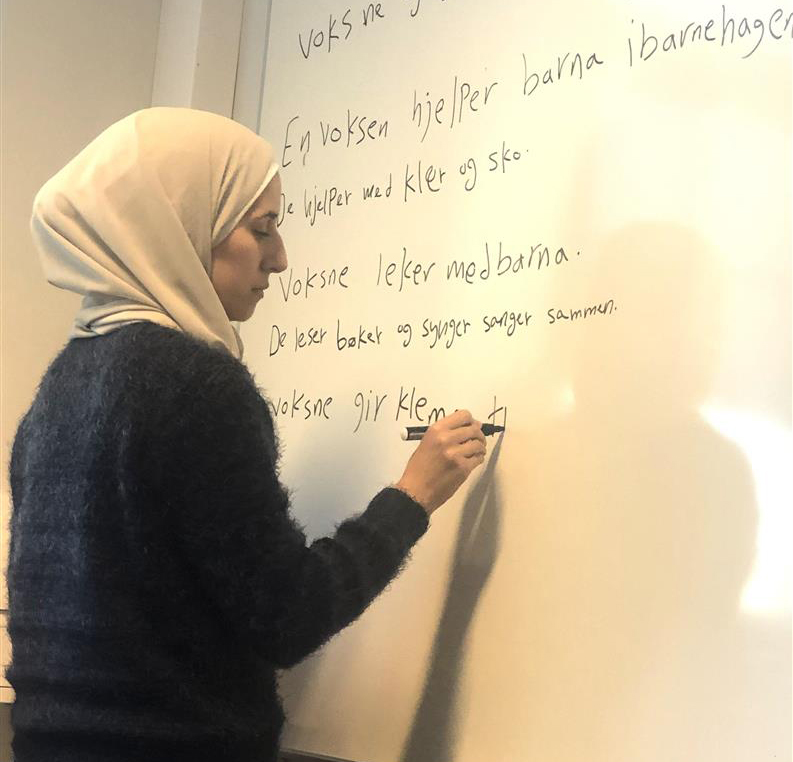 voksne
En voksen hjelper barna i barnehagen
De hjelper med kler og sko.
Voksne leker med barna.
De leser bøker og synger sanger sammen.
voksne gir